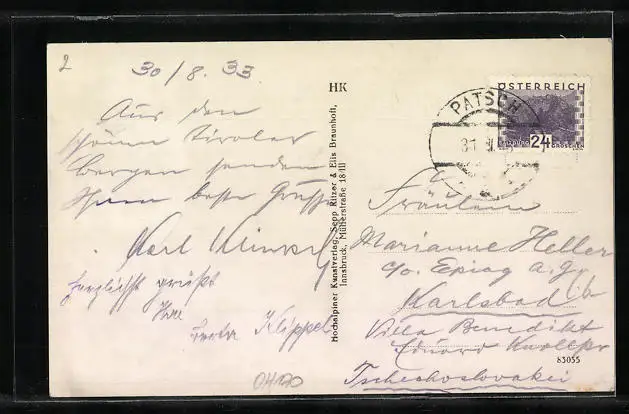 2
30/8.33
Aus den
schönen Tiroler
Bergen senden
Ihnen beste Grüße
Karl
herzlichst grüßt
Ihre
Klippel
04170
HK
Hochalpiner Kunstverlag, Sepp Ritzer & Elis Braunhoff,
Innsbruck, Müllerstraße 18/II
PATSCH
ÖSTERREICH
24
GROSCHEN
Fräulein
Marianne Heller
c/o. Epiag A.G.
Karlsbad
Villa Benedikt
Eduard Knoll
83055
Tschechoslovakei